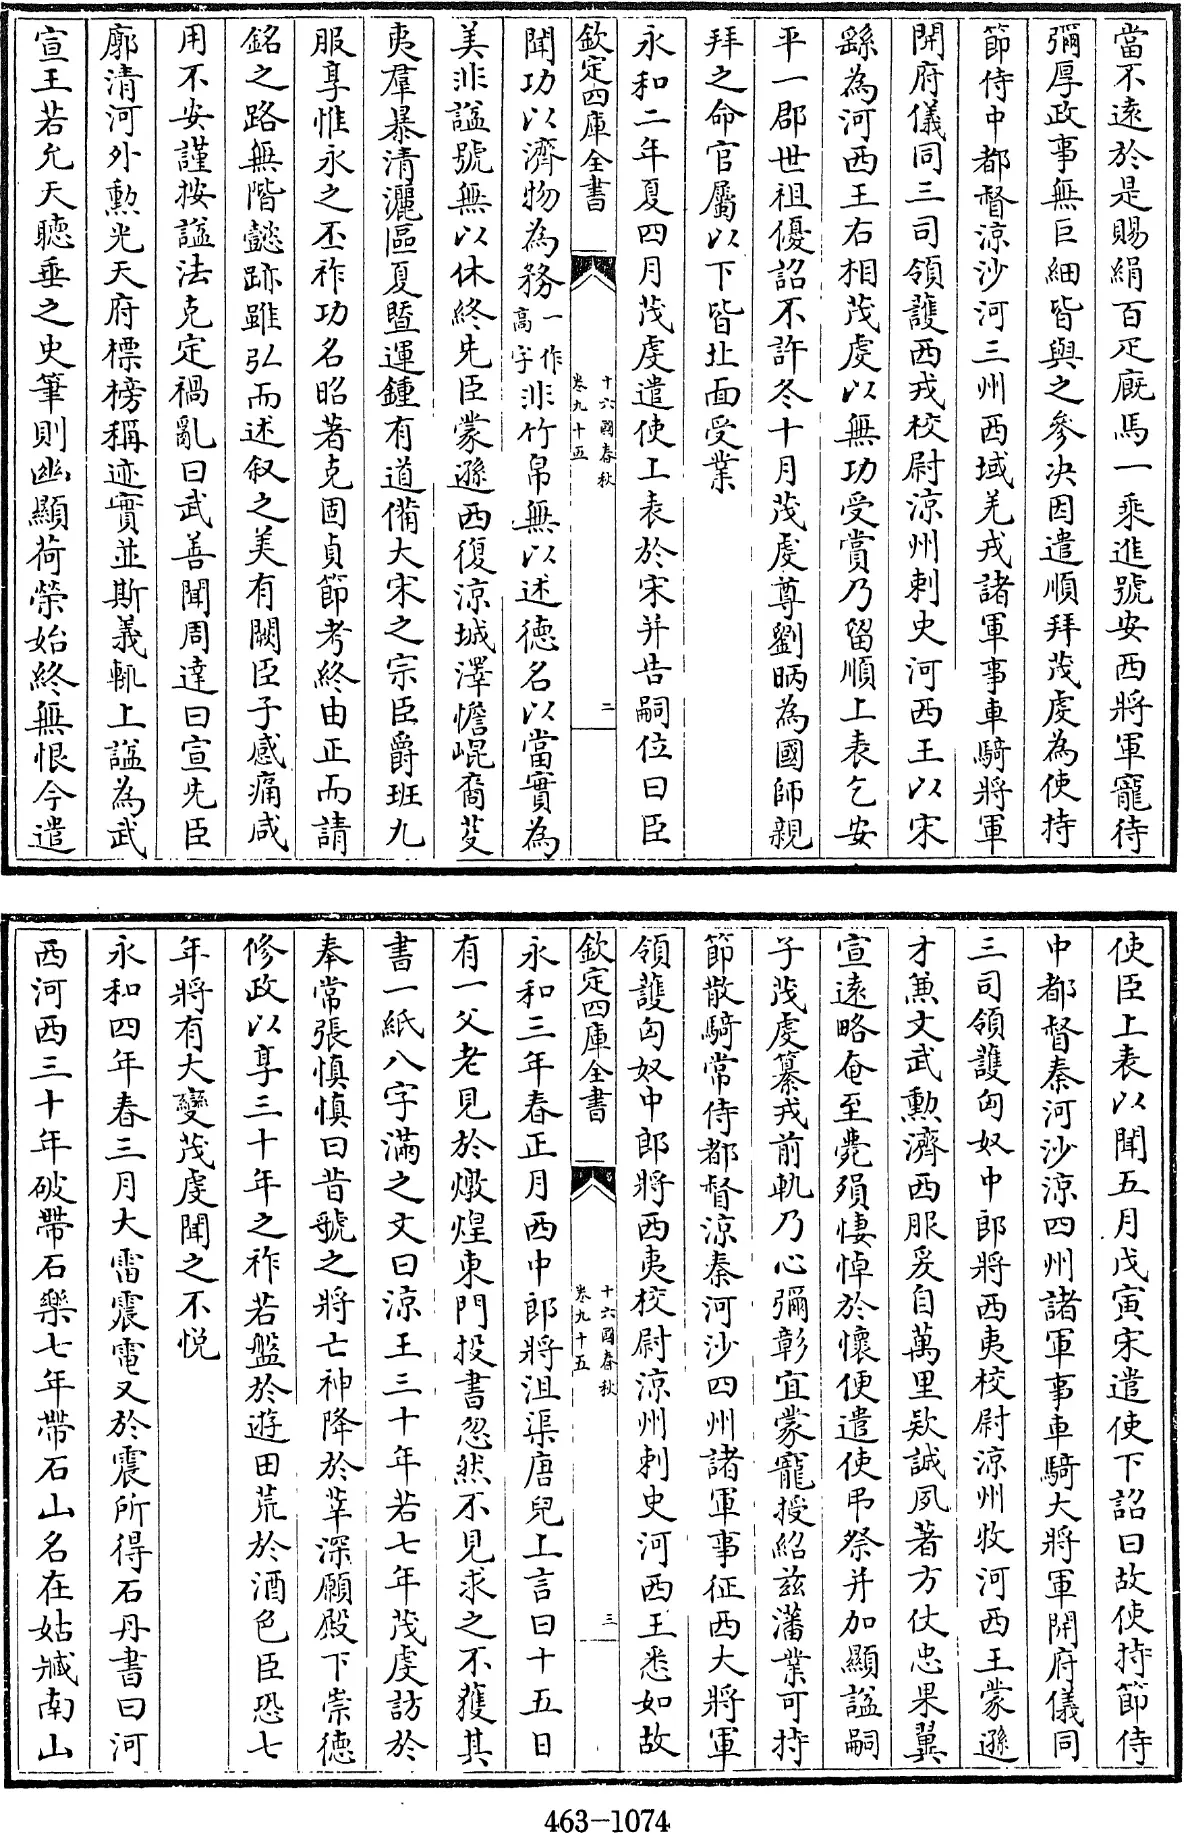 當不遠於是賜絹百疋廐馬一乘進號安西將軍寵待
彌厚政事無巨細皆與之參决因遣順拜茂虔為使持
節侍中都督涼沙河三州西域羌戎諸軍事車騎將軍
開府儀同三司領護西戎校尉涼州刺史河西王以宋
繇為河西王右相茂虔以無功受賞乃留順上表乞安
平一郡世祖優詔不許冬十月茂虔尊劉昞為國師親
拜之命官屬以下皆北面受業
永和二年夏四月茂虔遣使上表於宋并告嗣位曰臣
欽定四庫全書
十六國春秋
卷九十五
二
聞功以濟物為務一作高字非竹帛無以述德名以當實為
美非諡號無以休終先臣蒙遜西復涼城澤憺崐裔芟
夷羣暴清灑區夏暨運鍾有道備大宋之宗臣爵班九
服享惟永之丕祚功名昭著克固貞節考終由正而請
銘之路無階懿跡雖弘而述叙之美有闕臣子感痛咸
用不安謹按諡法克定禍亂曰武善聞周達曰宣先臣
廓清河外勲光天府標榜稱迹實並斯義輒上諡為武
宣王若允天聽垂之史筆則幽顯荷榮始終無恨今遣
使臣上表以聞五月戊寅宋遣使下詔曰故使持節侍
中都督秦河沙涼四州諸軍事車騎大將軍開府儀同
三司領護匈奴中郎將西夷校尉涼州收河西王蒙遜
才兼文武勲濟西服爰自萬里欵誠夙著方仗忠果翼
宣遠略奄至薨殞悽悼於懷便遣使弔祭并加顯諡嗣
子茂虔纂戎前軌乃心彌彰宜蒙寵授紹茲藩業可持
節散騎常侍都督涼秦河沙四州諸軍事征西大將軍
領護匈奴中郎將西夷校尉涼州刺史河西王悉如故
欽定四庫全書
十六國春秋
卷九十五
三
永和三年春正月西中郎將沮渠唐兒上言曰十五日
有一父老見於燉煌東門投書忽然不見求之不獲其
書一紙八字滿之文曰涼王三十年若七年茂虔訪於
奉常張慎慎曰昔虢之將亡神降於莘深願殿下崇德
修政以享三十年之祚若盤於遊田荒於酒色臣恐七
年將有大變茂虔聞之不悅
永和四年春三月大雷震電又於震所得石丹書曰河
西河西三十年破帶石樂七年帶石山名在姑臧南山
463-1074